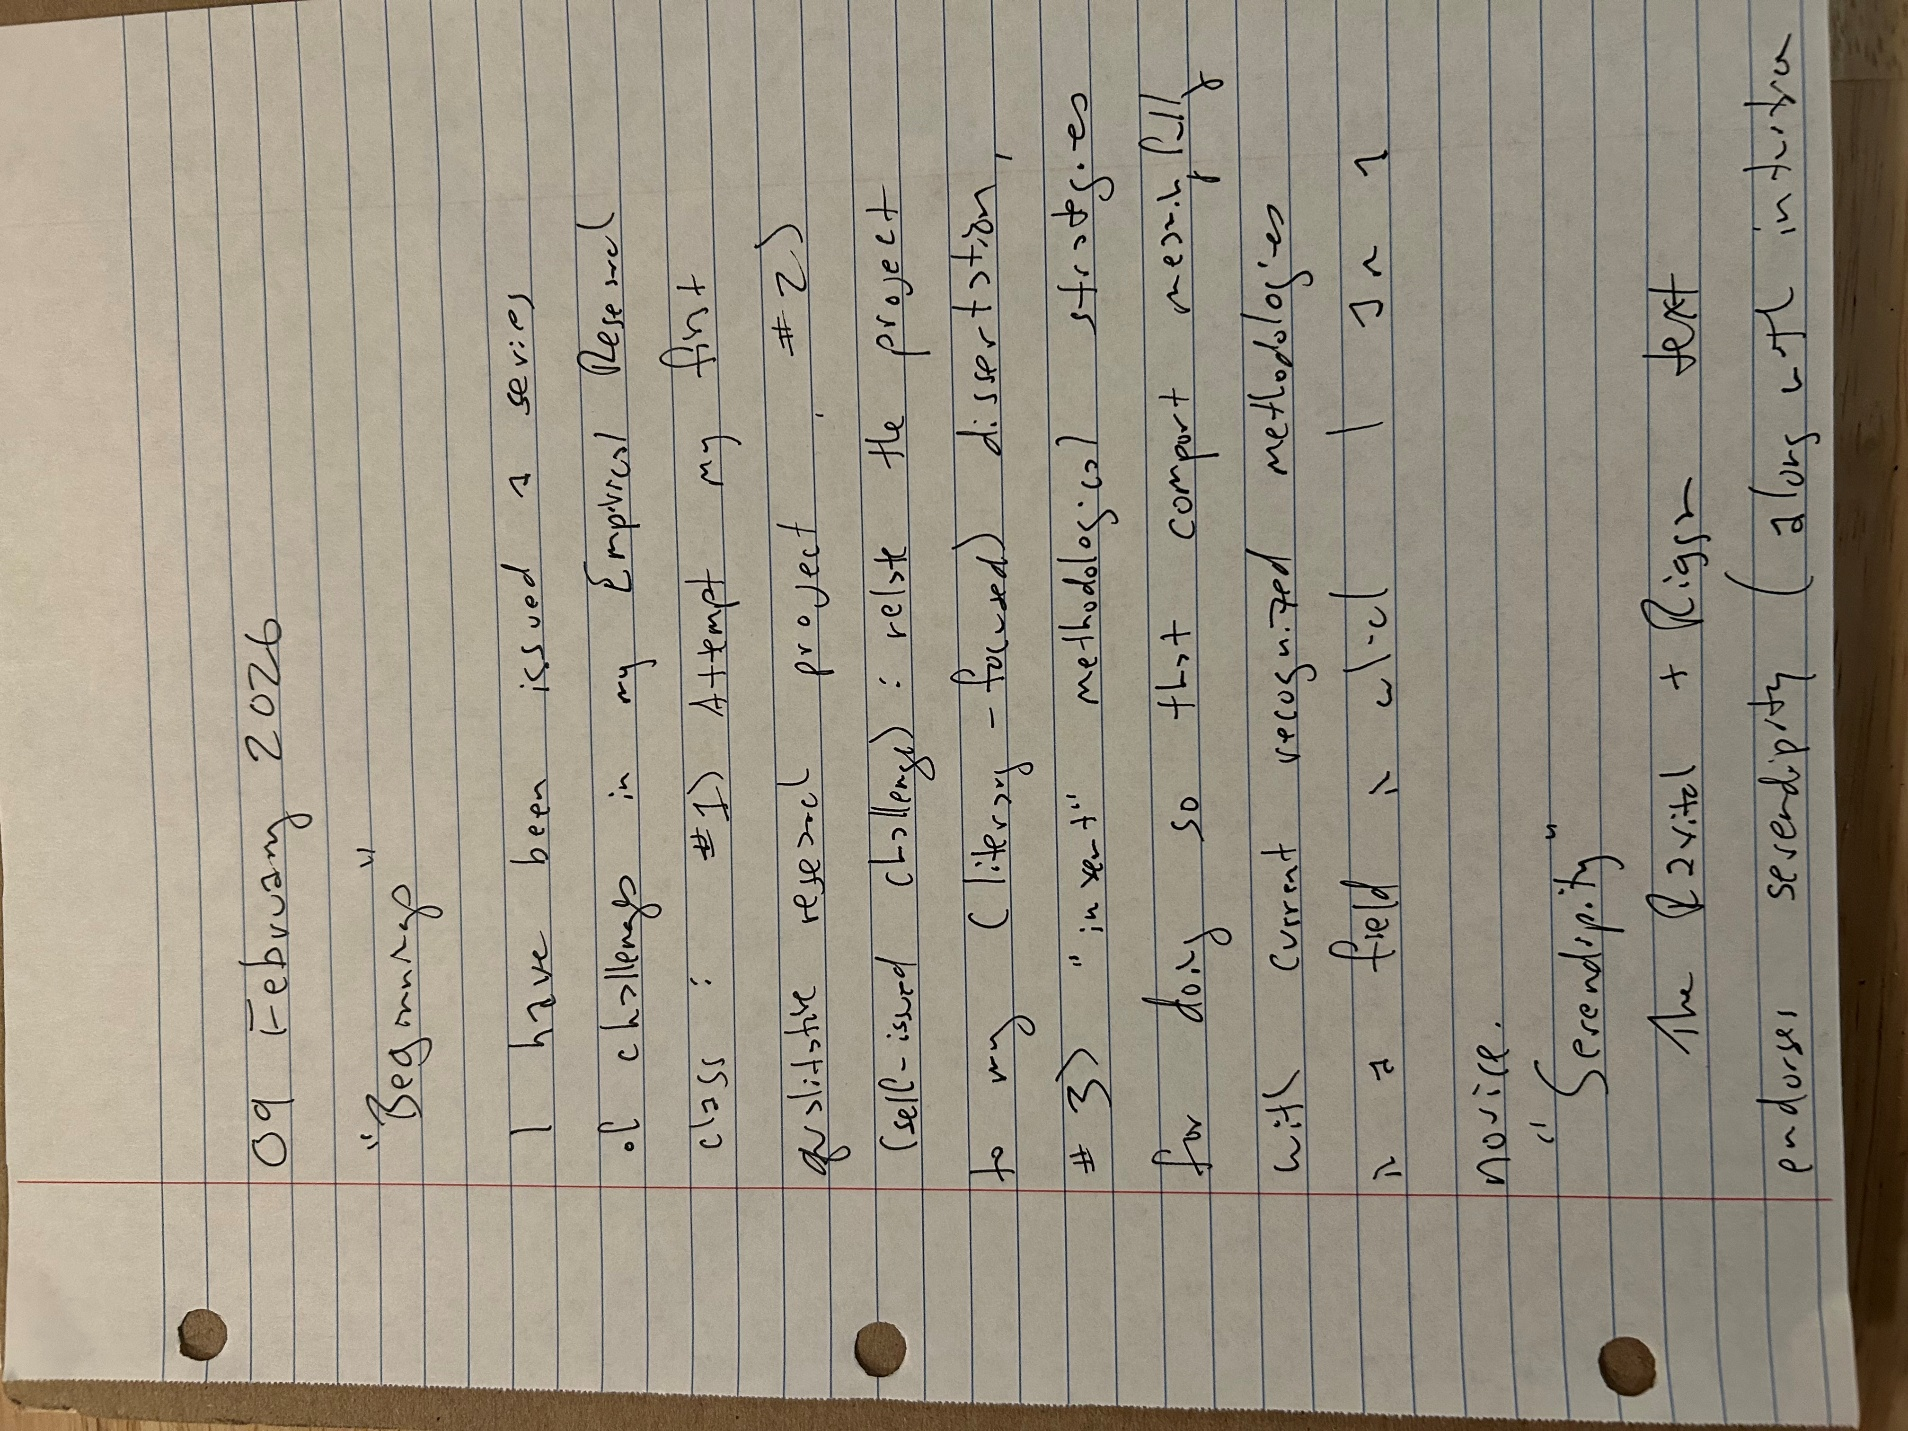 09 February 2026
"Beginnings"
I have been issued a series
of challenges in my Empirical Research
class : #1) Attempt my first
qualitative research project. #2)
(self-issued challenge) : relate the project
to my (literary-focused) dissertation,
#3) "invent" methodological strategies
for doing so that comport meaningfully
with current recognized methodologies
in a field in which I am a
novice.
"Serendipity"
The Ravitch + Riggan text
endorses serendipity (along with intuition